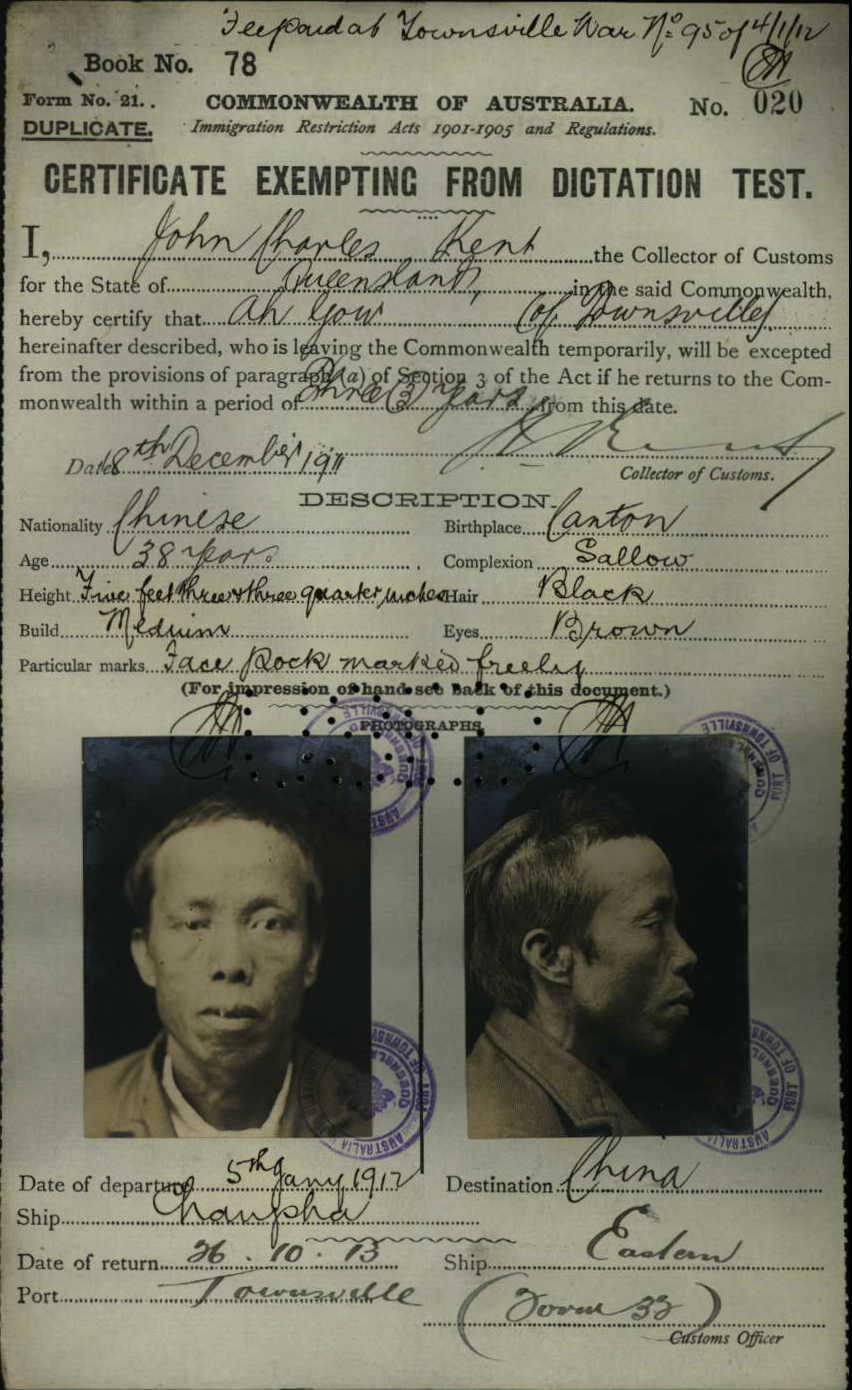 Fee paid at Townsville War No. 95 of 4/1/12
Book No. 78
Form No. 21. COMMONWEALTH OF AUSTRALIA. No. 020
DUPLICATE. Immigration Restriction Acts 1901-1905 and Regulations.
CERTIFICATE EXEMPTING FROM DICTATION TEST.
I, John Charles Kent the Collector of Customs
for the State of Queensland, in the said Commonwealth,
hereby certify that Ah Gow (of Townsville)
hereinafter described, who is leaving the Commonwealth temporarily, will be excepted
from the provisions of paragraph (a) of Section 3 of the Act if he returns to the Com-
monwealth within a period of three (3) years from this date.
Date 18th December 1911
Collector of Customs.
DESCRIPTION.
Nationality Chinese Birthplace Canton
Age 38 years Complexion Sallow
Height Five feet three & three quarter inches Hair Black
Build Medium Eyes Brown
Particular marks Face Pock marked freely
(For impression of hand see back of this document.)
PHOTOGRAPHS
Date of departure 5th Jany 1912 Destination China
Ship Changsha
Date of return 26.10.13 Ship Eastern
Port Townsville (Form 32)
Customs Officer